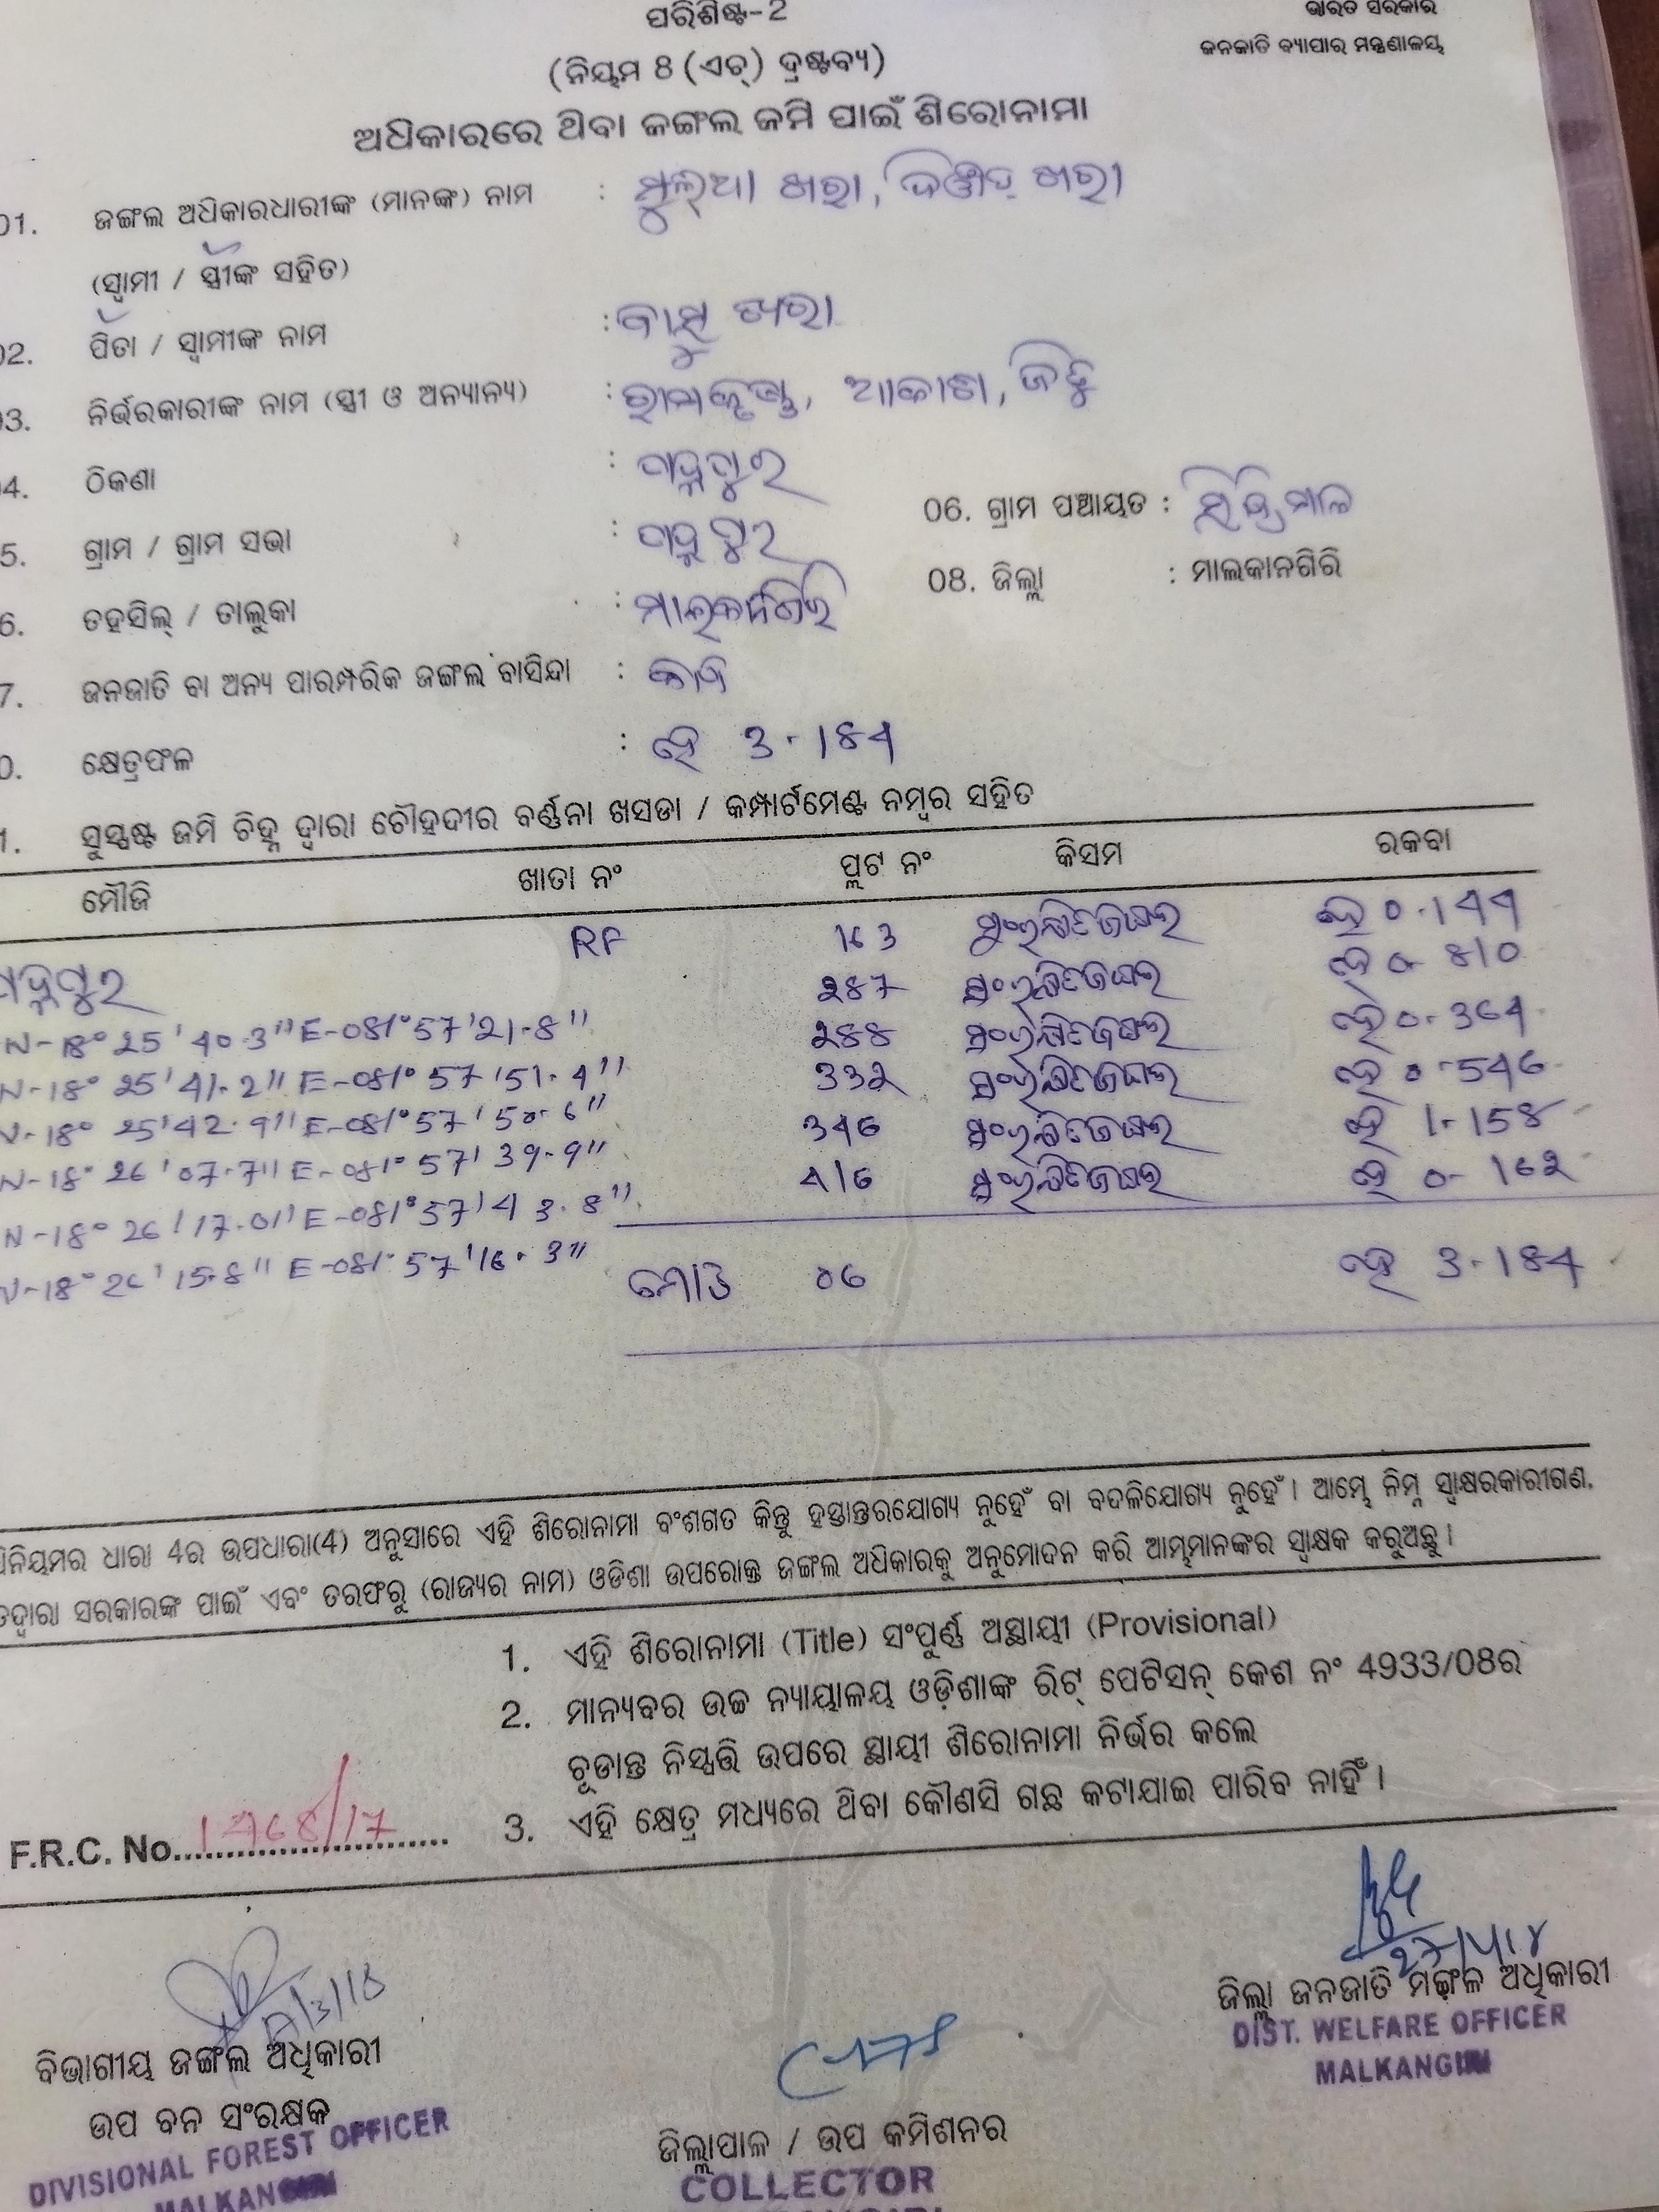 ପରିଶିଷ୍ଟ-2
ଭାରତ ସରକାର
(ନିୟମ 8 (ଏଚ୍) ଦ୍ରଷ୍ଟବ୍ୟ)
ଜନଜାତି ବ୍ୟାପାର ମନ୍ତ୍ରଣାଳୟ
ଅଧିକାରରେ ଥିବା ଜଙ୍ଗଲ ଜମି ପାଇଁ ଶିରୋନାମା
01. ଜଙ୍ଗଲ ଅଧିକାରଧାରୀଙ୍କ (ମାନଙ୍କ) ନାମ : ଖରା, ଖରା
(ସ୍ୱାମୀ / ସ୍ତ୍ରୀଙ୍କ ସହିତ)
02. ପିତା / ସ୍ୱାମୀଙ୍କ ନାମ : ବାସୁ ଖରା
03. ନିର୍ଭରକାରୀଙ୍କ ନାମ (ସ୍ତ୍ରୀ ଓ ଅନ୍ୟାନ୍ୟ) : ରାମକୃଷ୍ଣ, ଆକାଶ, ଜିତୁ
04. ଠିକଣା : ପଦ୍ମପୁର
5. ଗ୍ରାମ / ଗ୍ରାମ ସଭା : ପଦ୍ମପୁର 06. ଗ୍ରାମ ପଞ୍ଚାୟତ :
6. ତହସିଲ୍ / ତାଲୁକା : ମାଲକାନଗିରି 08. ଜିଲ୍ଲା : ମାଲକାନଗିରି
7. ଜନଜାତି ବା ଅନ୍ୟ ପାରମ୍ପରିକ ଜଙ୍ଗଲ ବାସିନ୍ଦା :
0. କ୍ଷେତ୍ରଫଳ : ହେ 3.184
1. ସୁସ୍ପଷ୍ଟ ଜମି ଚିହ୍ନ ଦ୍ୱାରା ଚୌହଦୀର ବର୍ଣ୍ଣନା ଖସଡା / କମ୍ପାର୍ଟମେଣ୍ଟ ନମ୍ବର ସହିତ
ମୌଜି ଖାତା ନଂ ପ୍ଲଟ ନଂ କିସମ ରକବା
ପଦ୍ମପୁର RF 163 ସଂରକ୍ଷିତ ଜଙ୍ଗଲ ହେ 0.144
287 ସଂରକ୍ଷିତ ଜଙ୍ଗଲ ହେ 0.810
N-18° 25' 40.3" E-081° 57' 21.8" 288 ସଂରକ୍ଷିତ ଜଙ୍ଗଲ ହେ 0.364
N-18° 25' 41.2" E-081° 57' 51.4" 332 ସଂରକ୍ଷିତ ଜଙ୍ଗଲ ହେ 0.546
N-18° 25' 42.9" E-081° 57' 50.6" 346 ସଂରକ୍ଷିତ ଜଙ୍ଗଲ ହେ 1.158
N-18° 26' 07.7" E-081° 57' 39.9" 416 ସଂରକ୍ଷିତ ଜଙ୍ଗଲ ହେ 0.162
N-18° 26' 17.0" E-081° 57' 43.8"
N-18° 26' 15.8" E-081° 57' 16.3" ମୋଟ 06 ହେ 3.184
ଧିନିୟମର ଧାରା 4ର ଉପଧାରା(4) ଅନୁସାରେ ଏହି ଶିରୋନାମା ବଂଶଗତ କିନ୍ତୁ ହସ୍ତାନ୍ତରଯୋଗ୍ୟ ନୁହେଁ ବା ବଦଳିଯୋଗ୍ୟ ନୁହେଁ । ଆମ୍ଭେ ନିମ୍ନ ସ୍ୱାକ୍ଷରକାରୀଗଣ,
ତଦ୍ୱାରା ସରକାରଙ୍କ ପାଇଁ ଏବଂ ତରଫରୁ (ରାଜ୍ୟର ନାମ) ଓଡିଶା ଉପରୋକ୍ତ ଜଙ୍ଗଲ ଅଧିକାରକୁ ଅନୁମୋଦନ କରି ଆମ୍ଭମାନଙ୍କର ସ୍ୱାକ୍ଷକ କରୁଅଛୁ ।
1. ଏହି ଶିରୋନାମା (Title) ସଂପୂର୍ଣ୍ଣ ଅସ୍ଥାୟୀ (Provisional)
2. ମାନ୍ୟବର ଉଚ୍ଚ ନ୍ୟାୟାଳୟ ଓଡ଼ିଶାଙ୍କ ରିଟ୍ ପେଟିସନ୍ କେଶ ନଂ 4933/08ର
ଚୂଡାନ୍ତ ନିସ୍ପତ୍ତି ଉପରେ ସ୍ଥାୟୀ ଶିରୋନାମା ନିର୍ଭର କଲେ
3. ଏହି କ୍ଷେତ୍ର ମଧ୍ୟରେ ଥିବା କୌଣସି ଗଛ କଟାଯାଇ ପାରିବ ନାହିଁ ।
F.R.C. No. 1468/17
ବିଭାଗୀୟ ଜଙ୍ଗଲ ଅଧିକାରୀ
ଉପ ବନ ସଂରକ୍ଷକ
DIVISIONAL FOREST OFFICER
MALKANGIRI
ଜିଲ୍ଲାପାଳ / ଉପ କମିଶନର
COLLECTOR
ଜିଲ୍ଲା ଜନଜାତି ମଙ୍ଗଳ ଅଧିକାରୀ
DIST. WELFARE OFFICER
MALKANGIRI